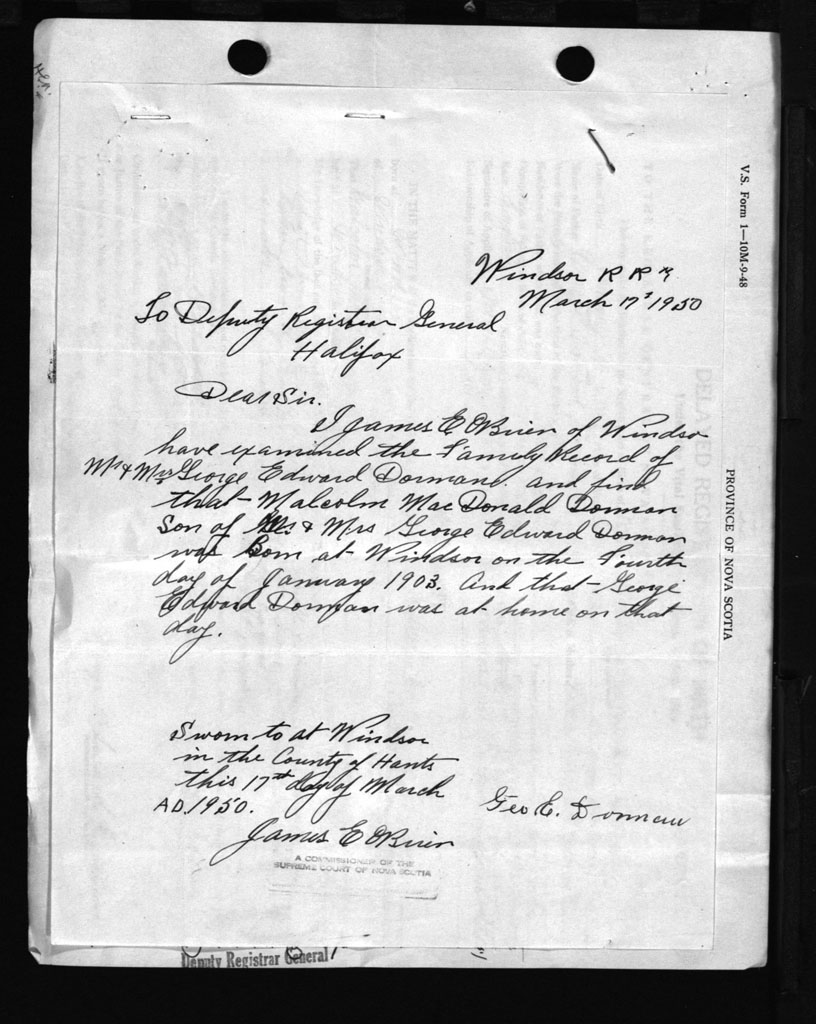 Windsor R R
March 17 1950
To Deputy Registrar General
Halifax
Dear Sir.
I James E OBrien of Windsor
have examined the Family Record of
Mr & Mrs George Edward Dorman. and find
that Malcolm MacDonald Dorman
Son of Mr & Mrs George Edward Dorman
was Born at Windsor on the Fourth
day of January 1903. And that George
Edward Dorman was at home on that
day.
Sworn to at Windsor
in the County of Hants
this 17th day of March
A.D. 1950.
Geo E. Dorman
James E OBrien
A COMMISSIONER OF THE
SUPREME COURT OF NOVA SCOTIA
Deputy Registrar General
V.S. Form 1—10M-9-48
PROVINCE OF NOVA SCOTIA